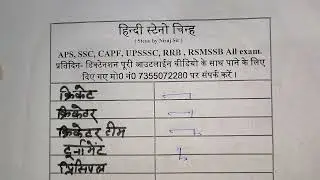 हिन्दी स्टेनो चिन्ह
( Steno by Niraj Sir )
APS, SSC, CAPF, UPSSSC, RRB , RSMSSB All exam.
प्रतिदिन- डिक्टेशन पूरी आउटलाईन वीडियो के साथ पाने के लिए
दिए गए मो0 नं0 7355072280 पर संपर्क करें।
क्रिकेट
क्रिकेटर
क्रिकेटर टीम
टूर्नामेंट
प्रिंसिपल